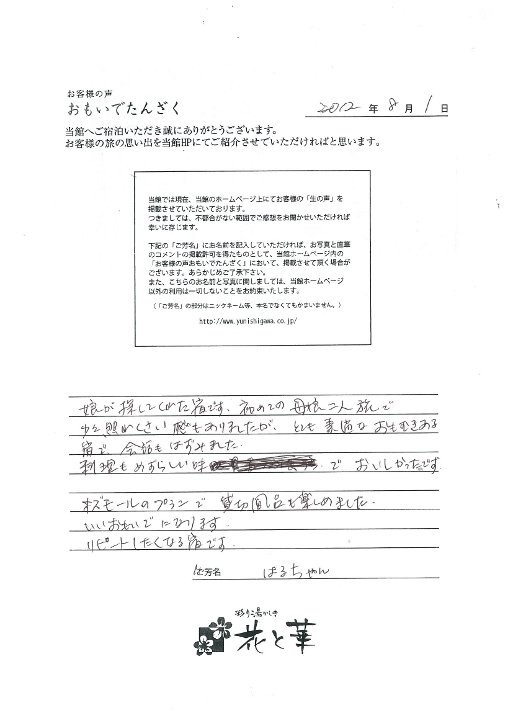 お客様の声
おもいでたんざく
2012年8月1日
当館へご宿泊いただき誠にありがとうございます。
お客様の旅の思い出を当館HPにてご紹介させていただければと思います。
当館では現在、当館のホームページ上にてお客様の「生の声」を
掲載させていただいております。
つきましては、不都合がない範囲でご感想をお聞かせいただければ
幸いに存じます。
下記の「ご芳名」にお名前を記入していただければ、お写真と直筆
のコメントの掲載許可を得たものとして、当館ホームページ内の
「お客様の声おもいでたんざく」において、掲載させて頂く場合が
ございます。あらかじめご了承下さい。
また、こちらのお名前と写真に関しましては、当館ホームページ
以外の利用は一切しないことをお約束いたします。
(「ご芳名」の部分はニックネーム等、本名でなくてもかまいません。)
http://www.yunishigawa.co.jp/
娘が探してくれた宿です、初めての母娘二人旅で
少々照れくさい感もありましたが、とても素敵なおもむきある
宿で、会話もはずみました.
料理もめずらしい味でおいしかったです.
オズモールのプランで貸切風呂も楽しめました.
いいおもいでになります.
リピートしたくなる宿です.
ご芳名 はるちゃん
花と華